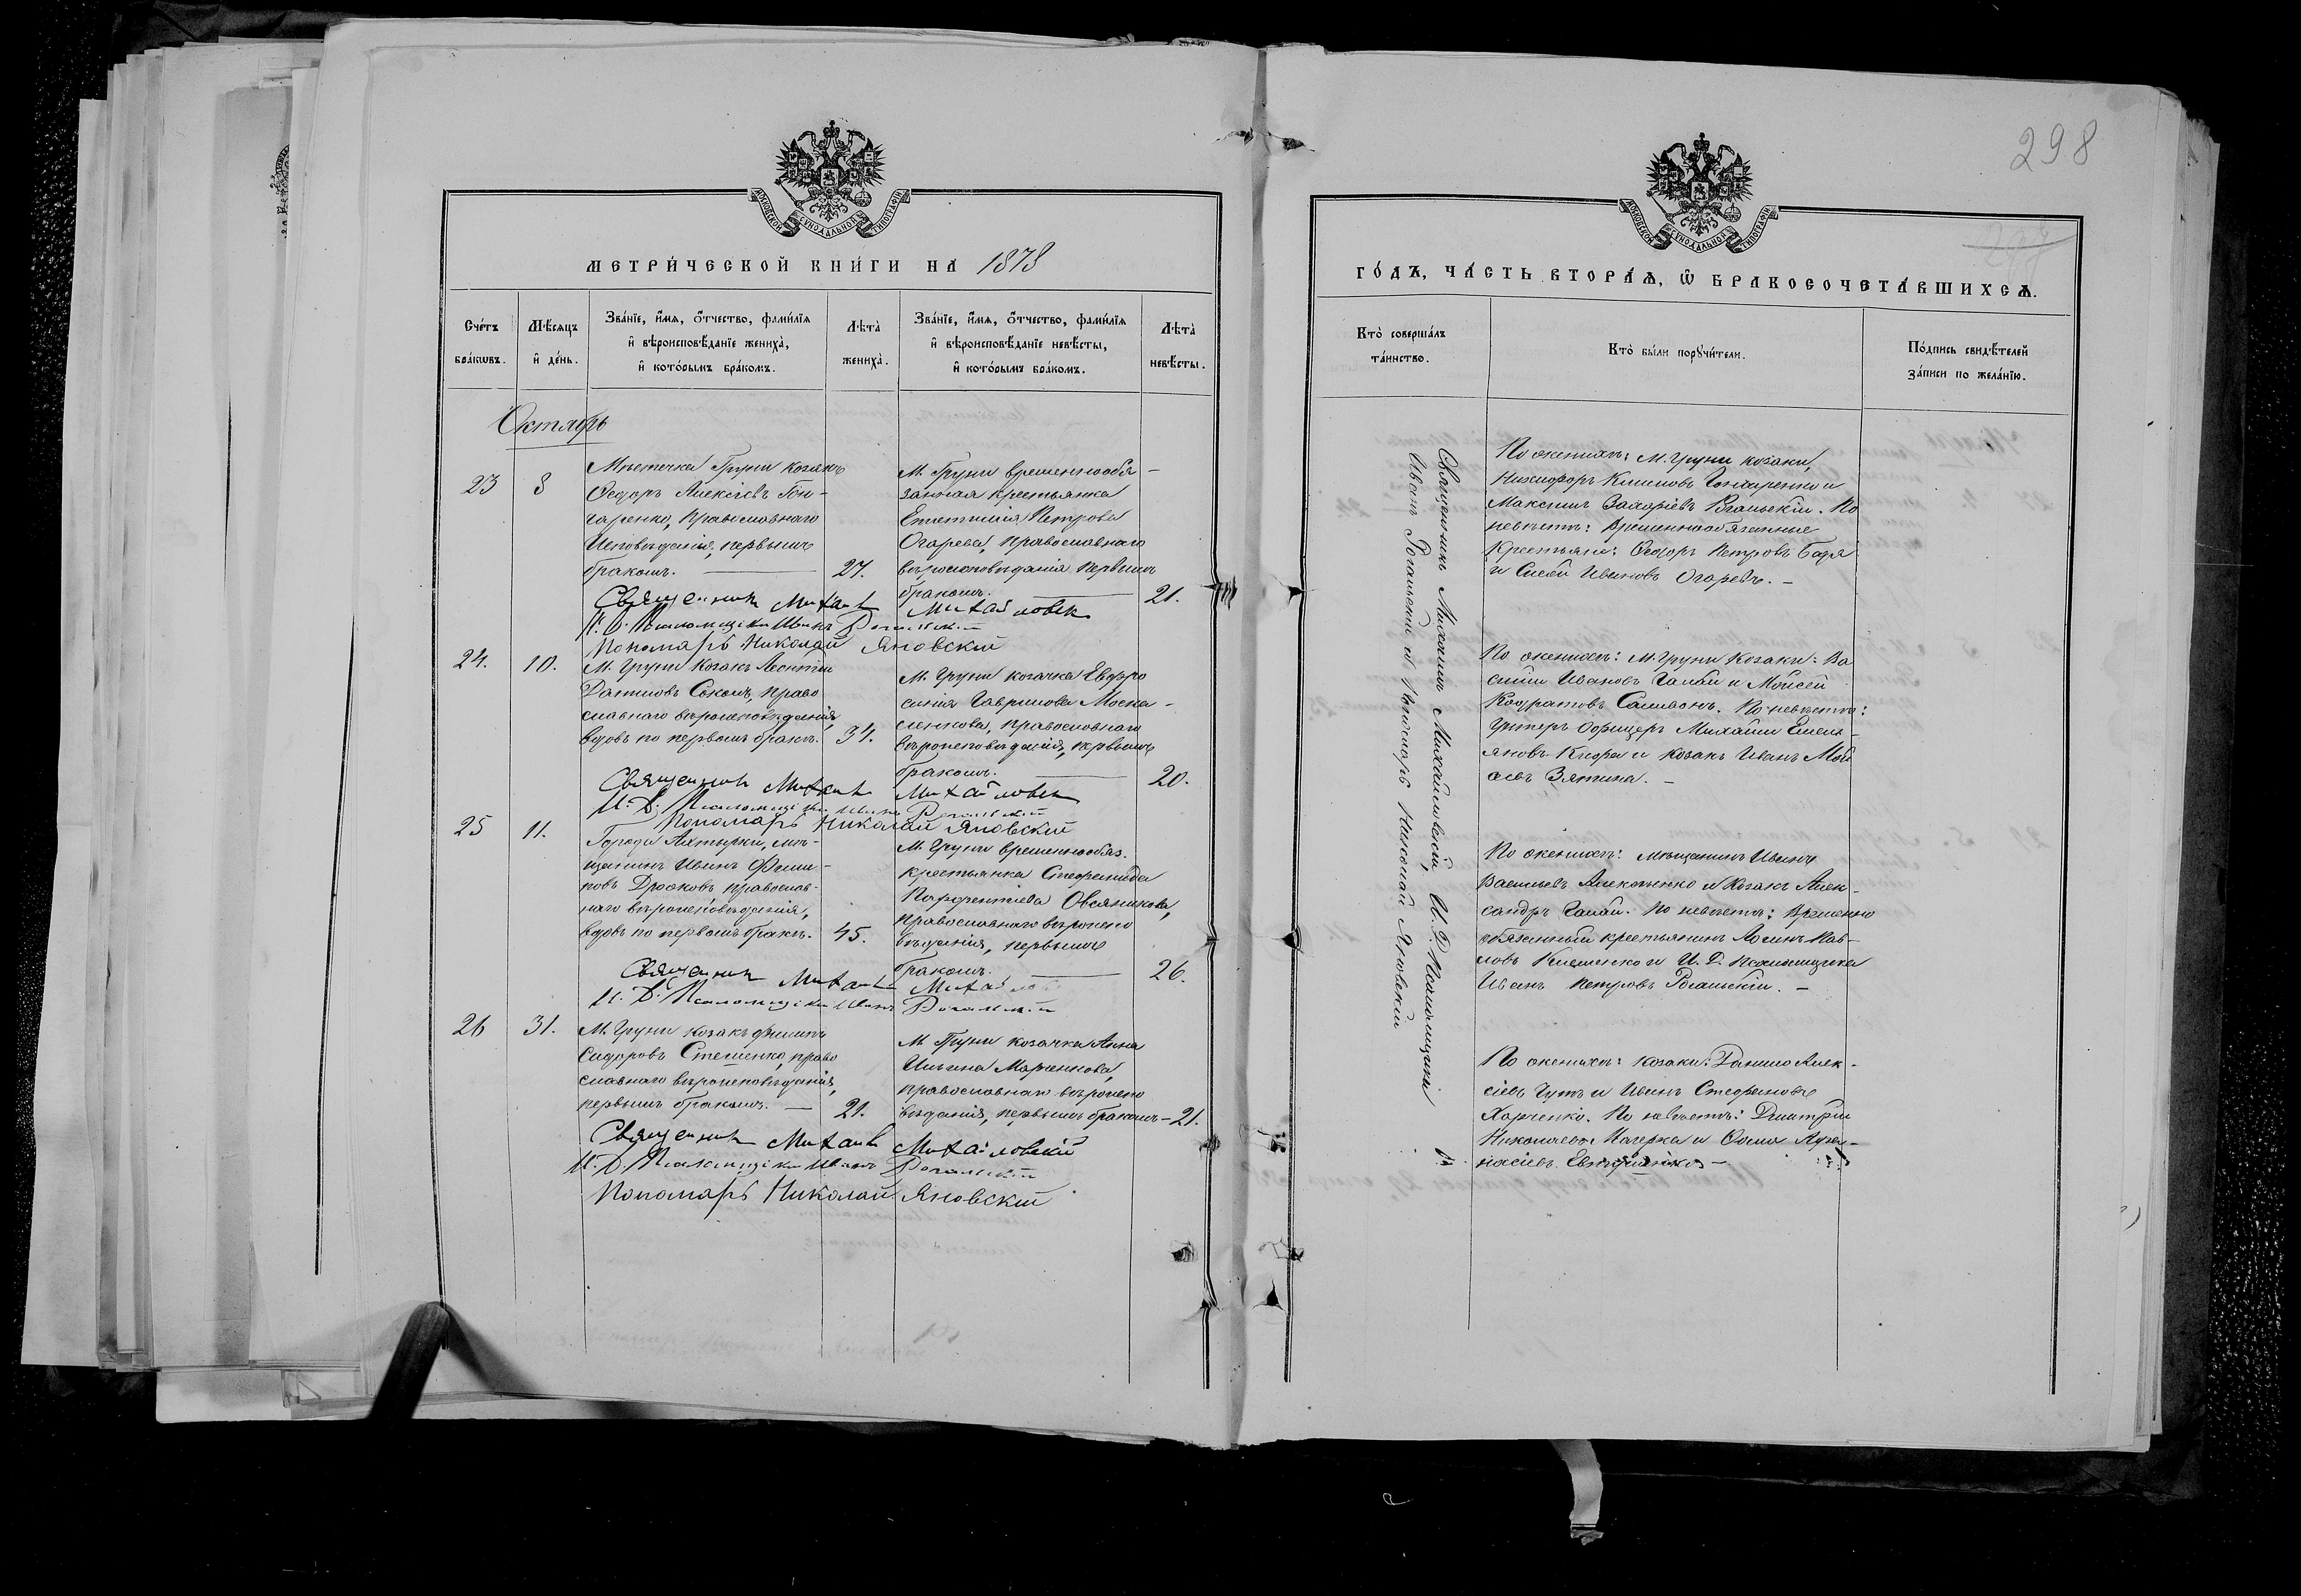 298
МОСКОВСКОЙ СѴНОДАЛЬНОЙ ТИПОГРАФІИ
МЕТРИ́ЧЕСКОЙ КНИ́ГИ НА 1878
Сче́тъ бра́кѡвъ.
Мѣ́сяцъ и҆ де́нь.
Зва́нїе, и҆́мѧ, ѻ҆́тчество, фамилїѧ
и҆ вѣроисповѣ́данїе жениха̀,
и҆ кото́рымъ бра́комъ.
Лѣта̀ жениха̀.
Зва́нїе, и҆́мѧ, ѻ҆́тчество, фамилїѧ
и҆ вѣроисповѣ́данїе невѣ́сты,
и҆ кото́рымъ бра́комъ.
Лѣта̀ невѣ́сты.
Октябрь
23
8
Мѣстечка Груни козакъ
Ѳедоръ Алексіевъ Гон-
чаренко, православнаго
Исповѣданія, первымъ
бракомъ.
27.
М. Груни временнообя-
занная крестьянка
Петрова
Огарева, православнаго
вѣроисповѣданія первымъ
бракомъ.
21.
Священникъ Михаилъ Михайловск
И. Д. Псаломщика Иванъ Рогальскій
Пономарь Николай Яновскій
24.
10.
М. Груни Козакъ Леонтій
Даниловъ право
славнаго вѣроисповѣданія,
вдовъ по первомъ бракѣ.
34.
М. Груни козачка Евфро
синія Гаврилова Моска-
ленкова, православнаго
вѣроисповѣданія, первымъ
бракомъ.
20.
Священникъ Михаилъ Михайловск
И. Д. Псаломщика Иванъ Рогальскій
Пономарь Николай Яновскій
25
11.
Города Ахтырки, мѣ-
щанинъ Иванъ Фили-
повъ православ-
наго вѣроисповѣданія,
вдовъ по первомъ бракѣ.
45.
М. Груни временнообяз.
крестьянка Стефанида
Парфентіева Овсяникова,
православнаго вѣроиспо
вѣданія, первымъ
бракомъ.
26.
Священникъ Михаилъ Михайло
И. Д. Псаломщика Иванъ Рогальскій
26
31.
М. Груни козакъ Филипъ
Сидоровъ Стешенко, право
славнаго вѣроисповѣданія,
первымъ бракомъ.
21.
М Груни козачка Анна
Ильина Марченкова,
православнаго вѣроиспо
вѣданія, первымъ бракомъ-
21.
Священникъ Михаилъ Михайловскій
И. Д. Псаломщика Иванъ Рогальскій
Пономарь Николай Яновскій
МОСКОВСКОЙ СѴНОДАЛЬНОЙ ТИПОГРАФІИ
ГО́ДЪ, ЧА́СТЬ ВТОРА́Ѧ, Ѽ БРАКОСОЧЕТА́ВШИХСѦ.
Кто̀ соверша́лъ та́инство.
Кто̀ бы́ли порꙋчи́тели.
По́дпись свидѣ́телей за́писи по жела́нїю.
Священникъ Михаилъ Михайловскій, И. Д. Псаломщика
Иванъ Рогальскій и Пономарь Николай Яновскій
По женихѣ: М. Груни козаки,
Никифоръ Климовъ Гончаренко и
Максимъ Захаріевъ Рогальскій. По
невѣстѣ: Временнообязанные
Крестьяне: Ѳедоръ Петровъ
и Ивановъ Огаревъ. -
По женихѣ: М. Груни Козаки: Ва
силій Ивановъ Галай и Мойсей
Кодратовъ. По невѣстѣ:
Унтеръ Офицеръ Михаилъ Емель-
яновъ и козакъ Иванъ Мой
сіевъ Зятина. -
По женихѣ: мѣщанинъ Иванъ
Васильевъ и Козакъ Алек-
сандръ Галай. По невѣстѣ: Временно
обязанный крестьянинъ Пав-
ловъ и И. Д. Псаломщика
Иванъ Петровъ Рогальскій. -
По женихѣ: козаки: Данило Алек-
сіевъ и Иванъ Стефановъ
Харченко. По невѣстѣ: Дмитрій
Николаевъ и Ѳома Афа-
насіевъ